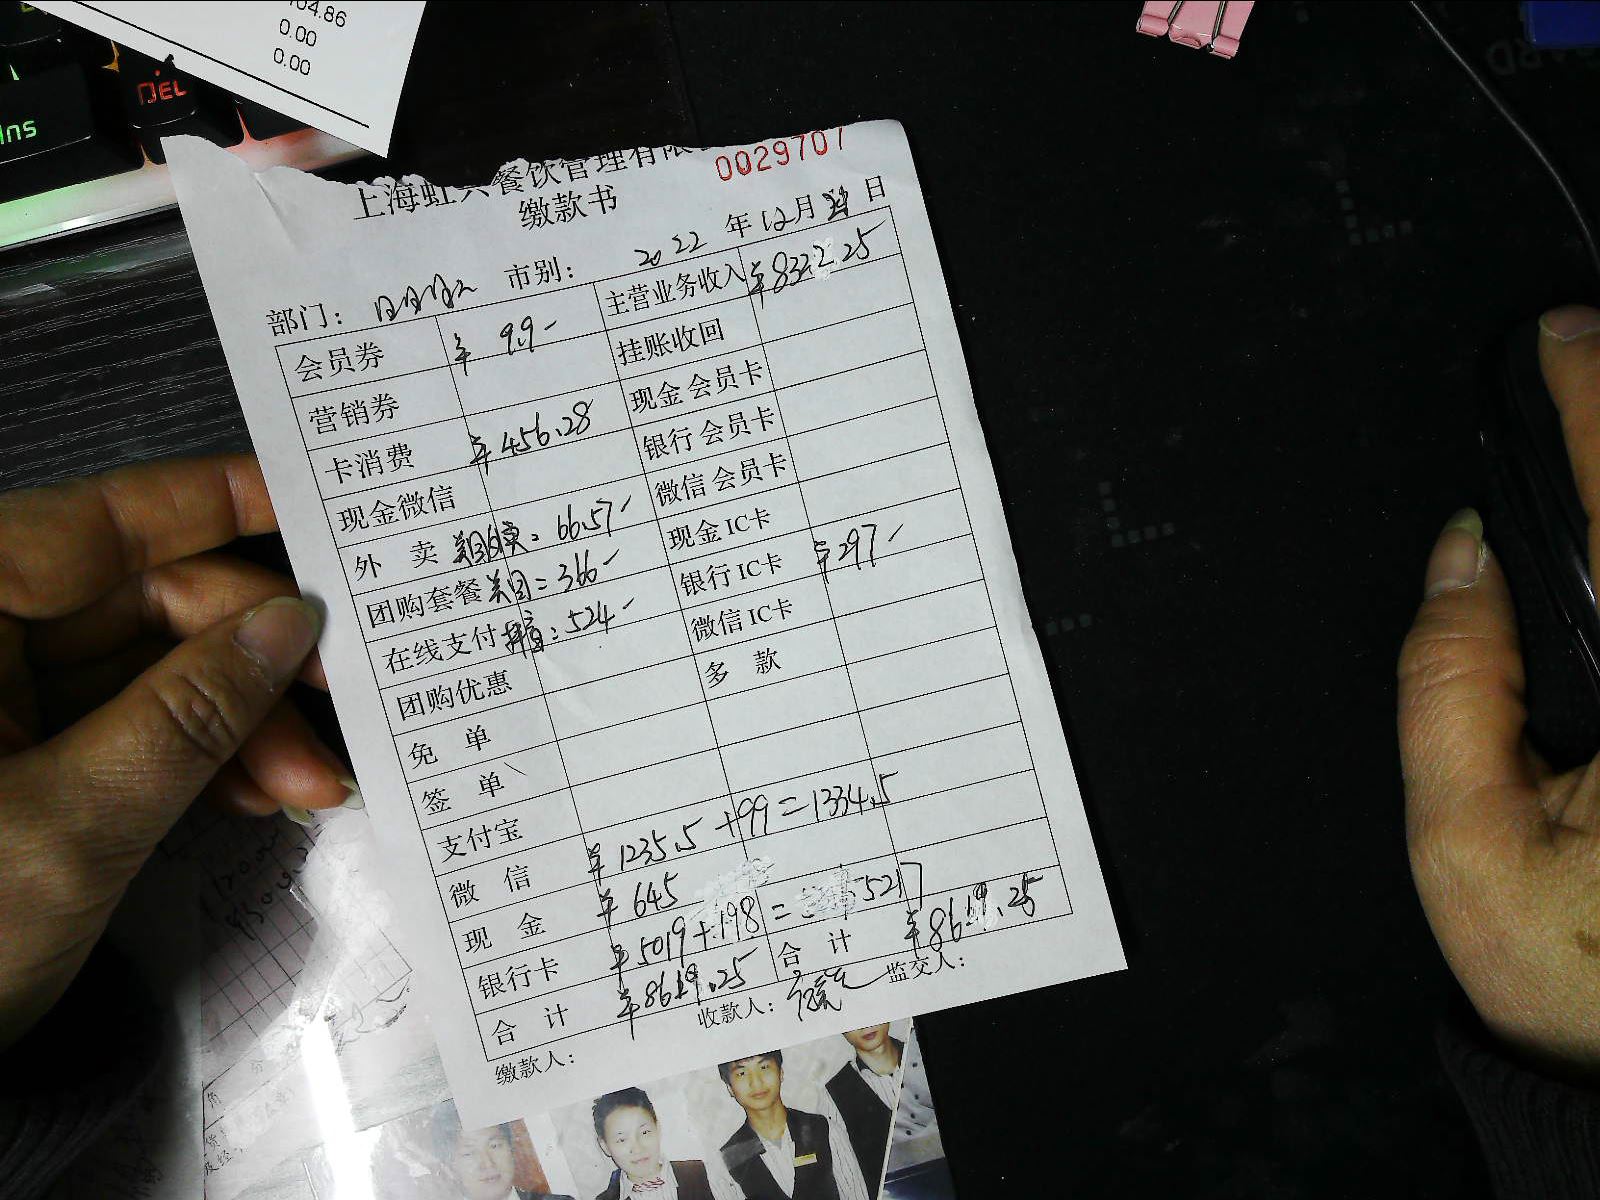 04.86
0.00
0.00
DEL
Ins
0029707
上海虹 餐饮管理有限
缴款书
部门： 市别： 2022 年 12 月 日
会员券 ¥ 99- 主营业务收入 ¥8322.25
营销券 挂账收回
卡消费 ¥456.28 现金会员卡
现金微信 银行会员卡
外 卖 美团外卖：66.57- 微信会员卡
团购套餐 美团：366- 现金IC卡
在线支付 抖音：524- 银行IC卡 ¥297-
团购优惠 微信IC卡
免 单 多 款
签 单
支付宝
微 信 ¥1235.5 +99=1334.5
现 金 ¥645
银行卡 ¥5019+198 = 5217
合 计 ¥8619.25 合 计 ¥8619.25
缴款人： 收款人： 监交人：